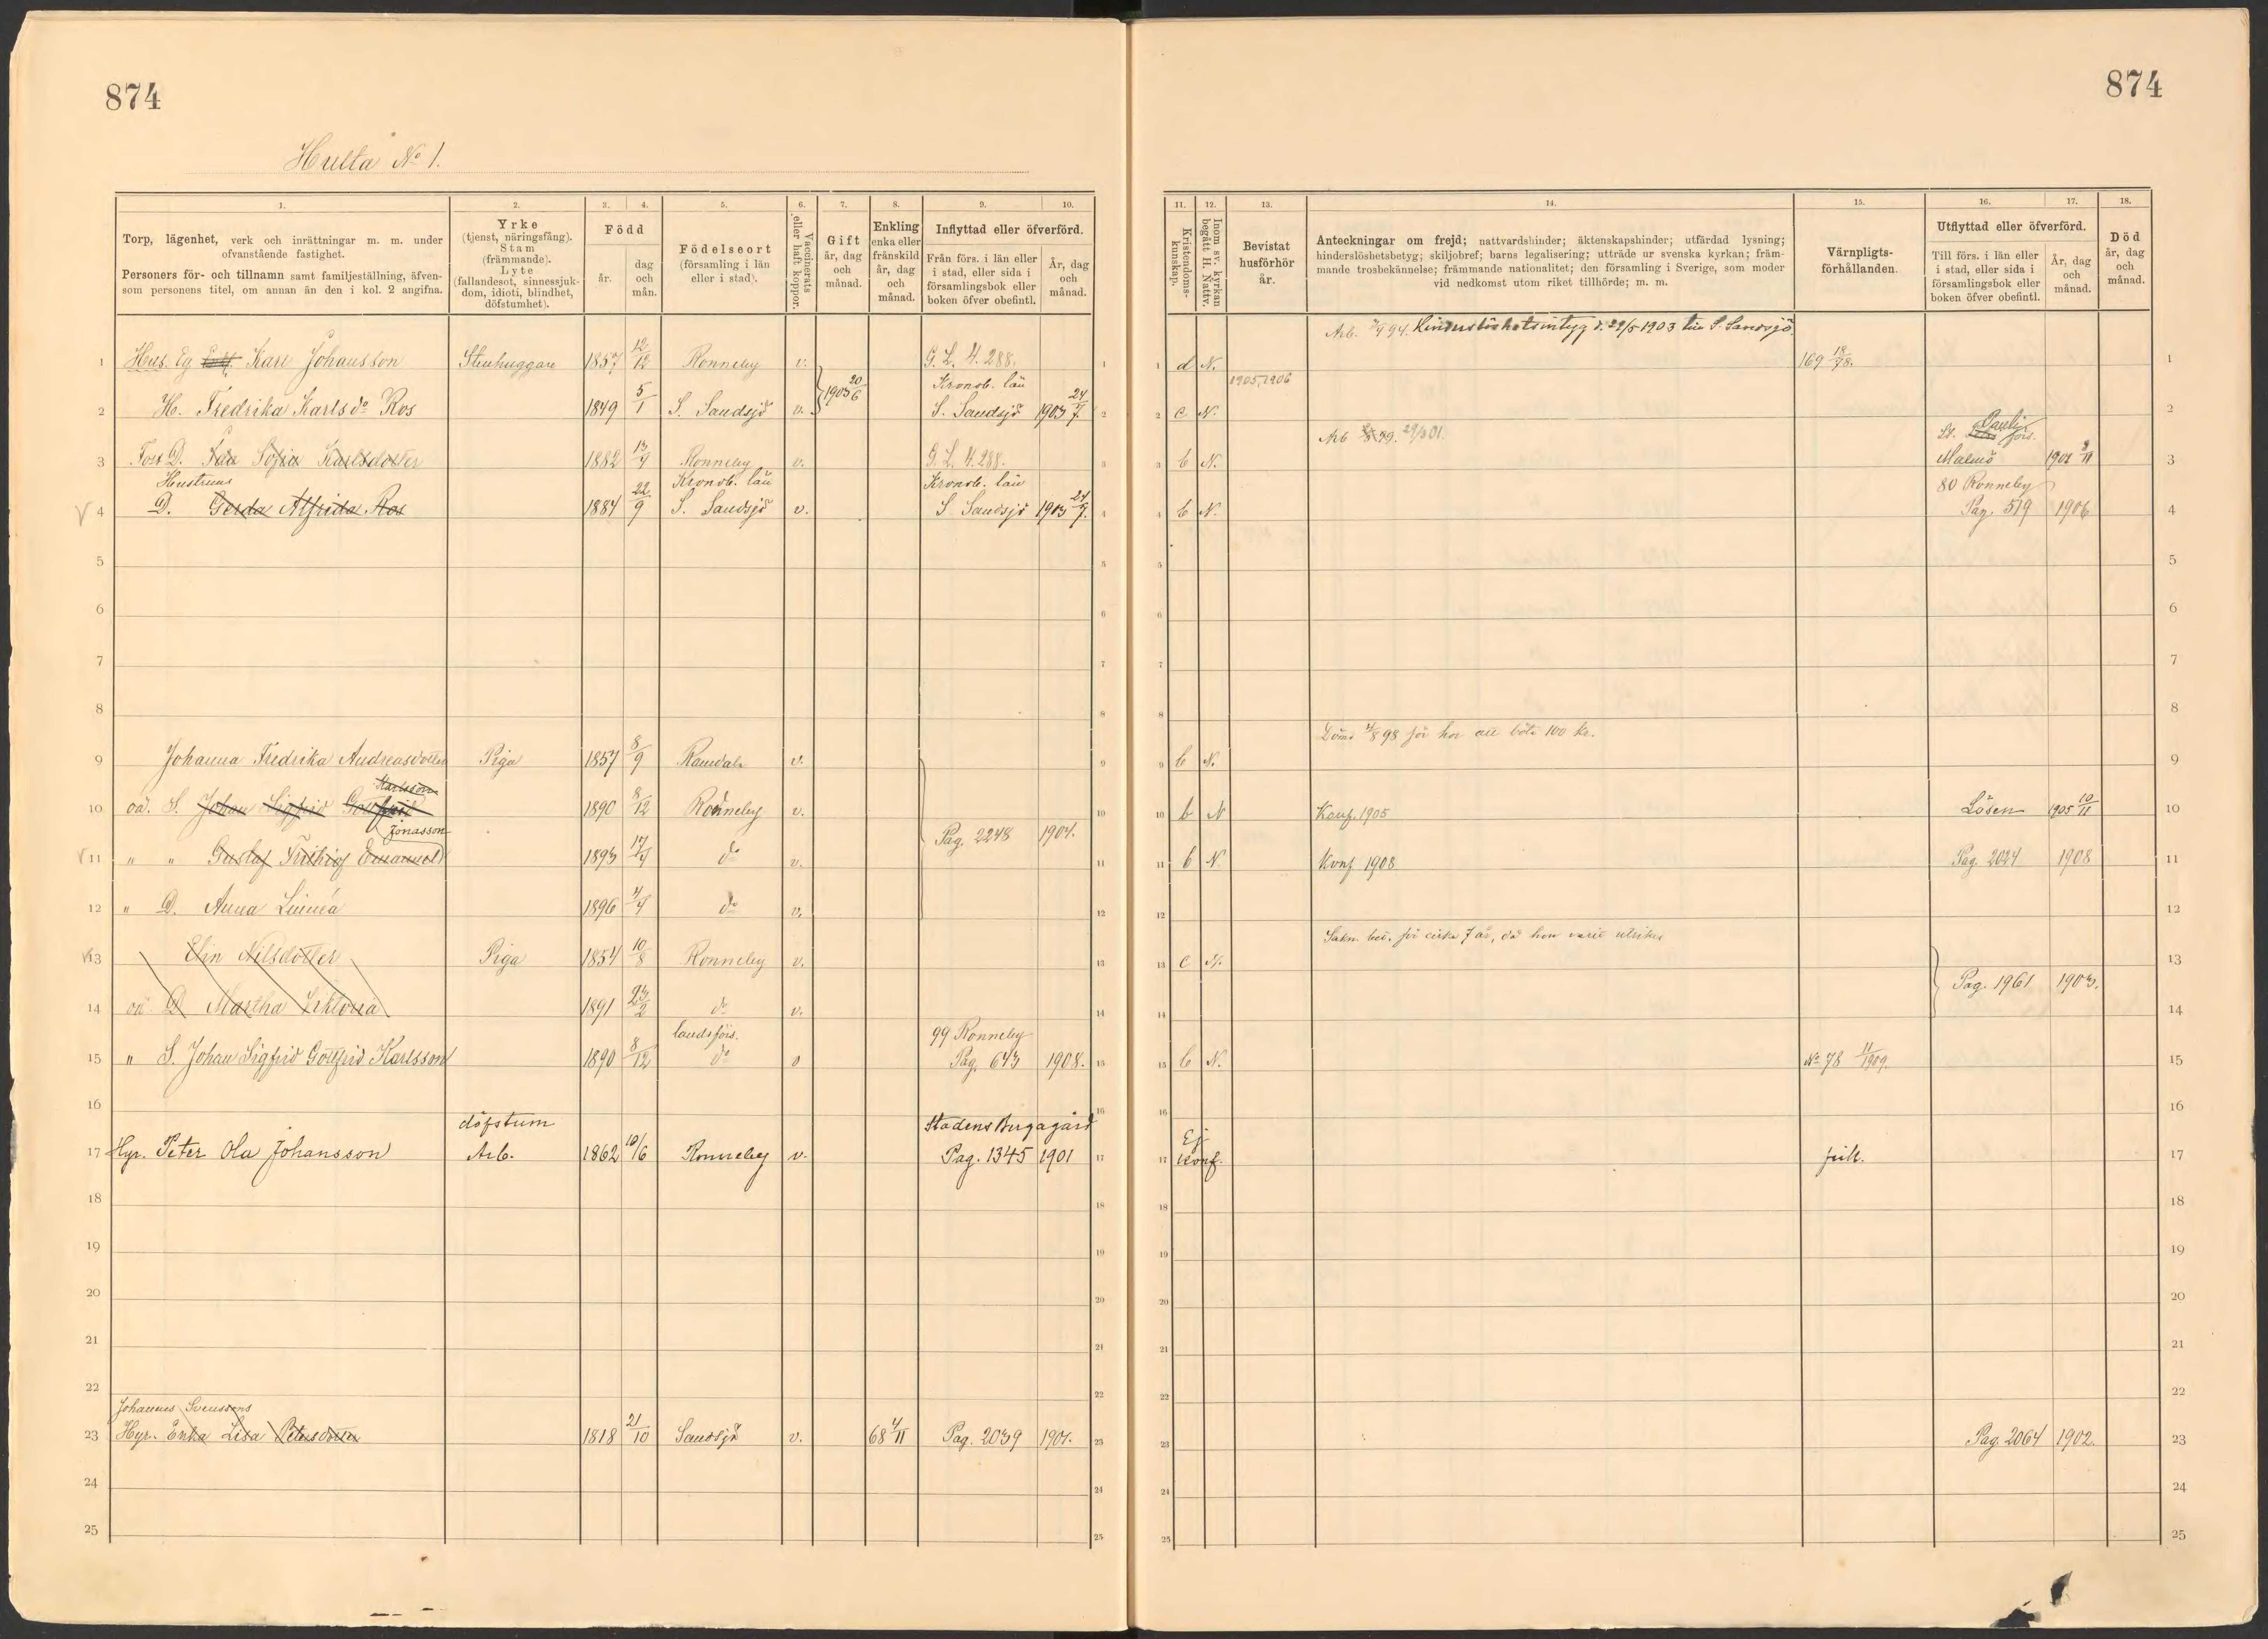 874
874
Hulta No 1.
1. 2. 3. 4. 5. 6. 7. 8. 9. 10.
Torp, lägenhet, verk och inrättningar m. m. under ofvanstående fastighet.
Personers för- och tillnamn samt familjeställning, äfvensom personens titel, om annan än den i kol. 2 angifna.
Yrke (tjenst, näringsfång). Stam (främmande). Lyte (fallandesot, sinnessjukdom, idioti, blindhet, döfstumhet).
Född
år.
dag och mån.
Födelseort (församling i län eller i stad).
Vaccinerats eller haft koppor.
Gift år, dag och månad.
Enkling enka eller frånskild år, dag och månad.
Inflyttad eller öfverförd.
Från förs. i län eller i stad, eller sida i församlingsbok eller boken öfver obefintl.
År, dag och månad.
11. 12. 13. 14. 15. 16. 17. 18.
Kristendomskunskap.
Inom sv. kyrkan begått H. Nattv.
Bevistat husförhör år.
Anteckningar om frejd; nattvardshinder; äktenskapshinder; utfärdad lysning; hinderslöshetsbetyg; skiljobref; barns legalisering; utträde ur svenska kyrkan; främmande trosbekännelse; främmande nationalitet; den församling i Sverige, som moder vid nedkomst utom riket tillhörde; m. m.
Värnpligtsförhållanden.
Utflyttad eller öfverförd.
Till förs. i län eller i stad, eller sida i församlingsbok eller boken öfver obefintl.
År, dag och månad.
Död år, dag och månad.
Hinderslöshetsintyg d. 29/5 1903 till S. Sandsjö.
1 Hus. Eg Karl Johansson Stenhuggare 1857 12/12 Ronneby v. G. L. H. 288. 1 d N. 169 18/78. 1
1903 20/6 Kronob. län 1905, 1906
2 H. Fredrika Karlsdo Ros 1849 5/1 S. Sandsjö v. S. Sandsjö 1903 24/7 2 c N. 2
29/3 01. Pauli förs.
3 Fost D. Ida Sofia Karlsdotter 1882 13/9 Ronneby v. G. L. H. 288. 3 b N. Malmö 1901 3
Hustruns Kronob. län Kronob. län 80 Ronneby
4 D. Gerda Alfrida Ros 1884 22/9 S. Sandsjö v. S Sandsjö 1903 24/7. 4 b N. Pag. 519 1906 4
5 5 5 5
6 6 6 6
7 7 7 7
8 8 8 8
Dömd 4/8 98 för hor att böta 100 kr.
9 Johanna Fredrika Andreasdotter Piga 1857 8/9 Ramdala v. 9 b N. 9
Karlsson
10 oä. S. Johan Sigfrid Gottfrid 1890 8/12 Ronneby v. 10 b N Konf. 1905 Lösen 1905 10/11 10
Jonasson Pag. 2248 1901.
11 " " Gustaf Frithiof Emanuel 1893 17/4 do v. 11 b N. Konf 1908 Pag. 2024 1908 11
12 " D. Anna Linnéa 1896 4/4 do v. 12 12
Sakn. bet. för cirka 7 år, då hon varit utrikes
13 Elin Nilsdotter Piga 1854 10/8 Ronneby v. 13 c N. 13
Pag. 1961 1903.
14 oä D Martha Viktoria 1891 23/2 do v. 14 14
landsförs. 99 Ronneby
15 " S. Johan Sigfrid Gottfrid Karlsson 1890 8/12 do v Pag. 643 1908. 15 b N. No 78 11/1909. 15
16 döfstum Stadens Bergagård 16 16
17 Hyr. Peter Ola Johansson Arb. 1862 10/6 Ronneby v. Pag. 1345 1901 17 Ej konf. frik. 17
18 18 18 18
19 19 19 19
20 20 20 20
21 21 21 21
22 22 22 22
Johannes Svenssons
23 Hyr. Enka Lisa Petersdotter 1818 21/10 Sandsjö v. 68 4/11 Pag. 2039 1901. 23 Pag. 2064 1902. 23
24 24 24 24
25 25 25 25